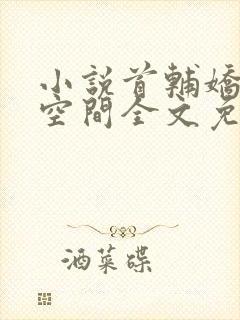 小說首輔嬌
空間全文免
酒菜碟